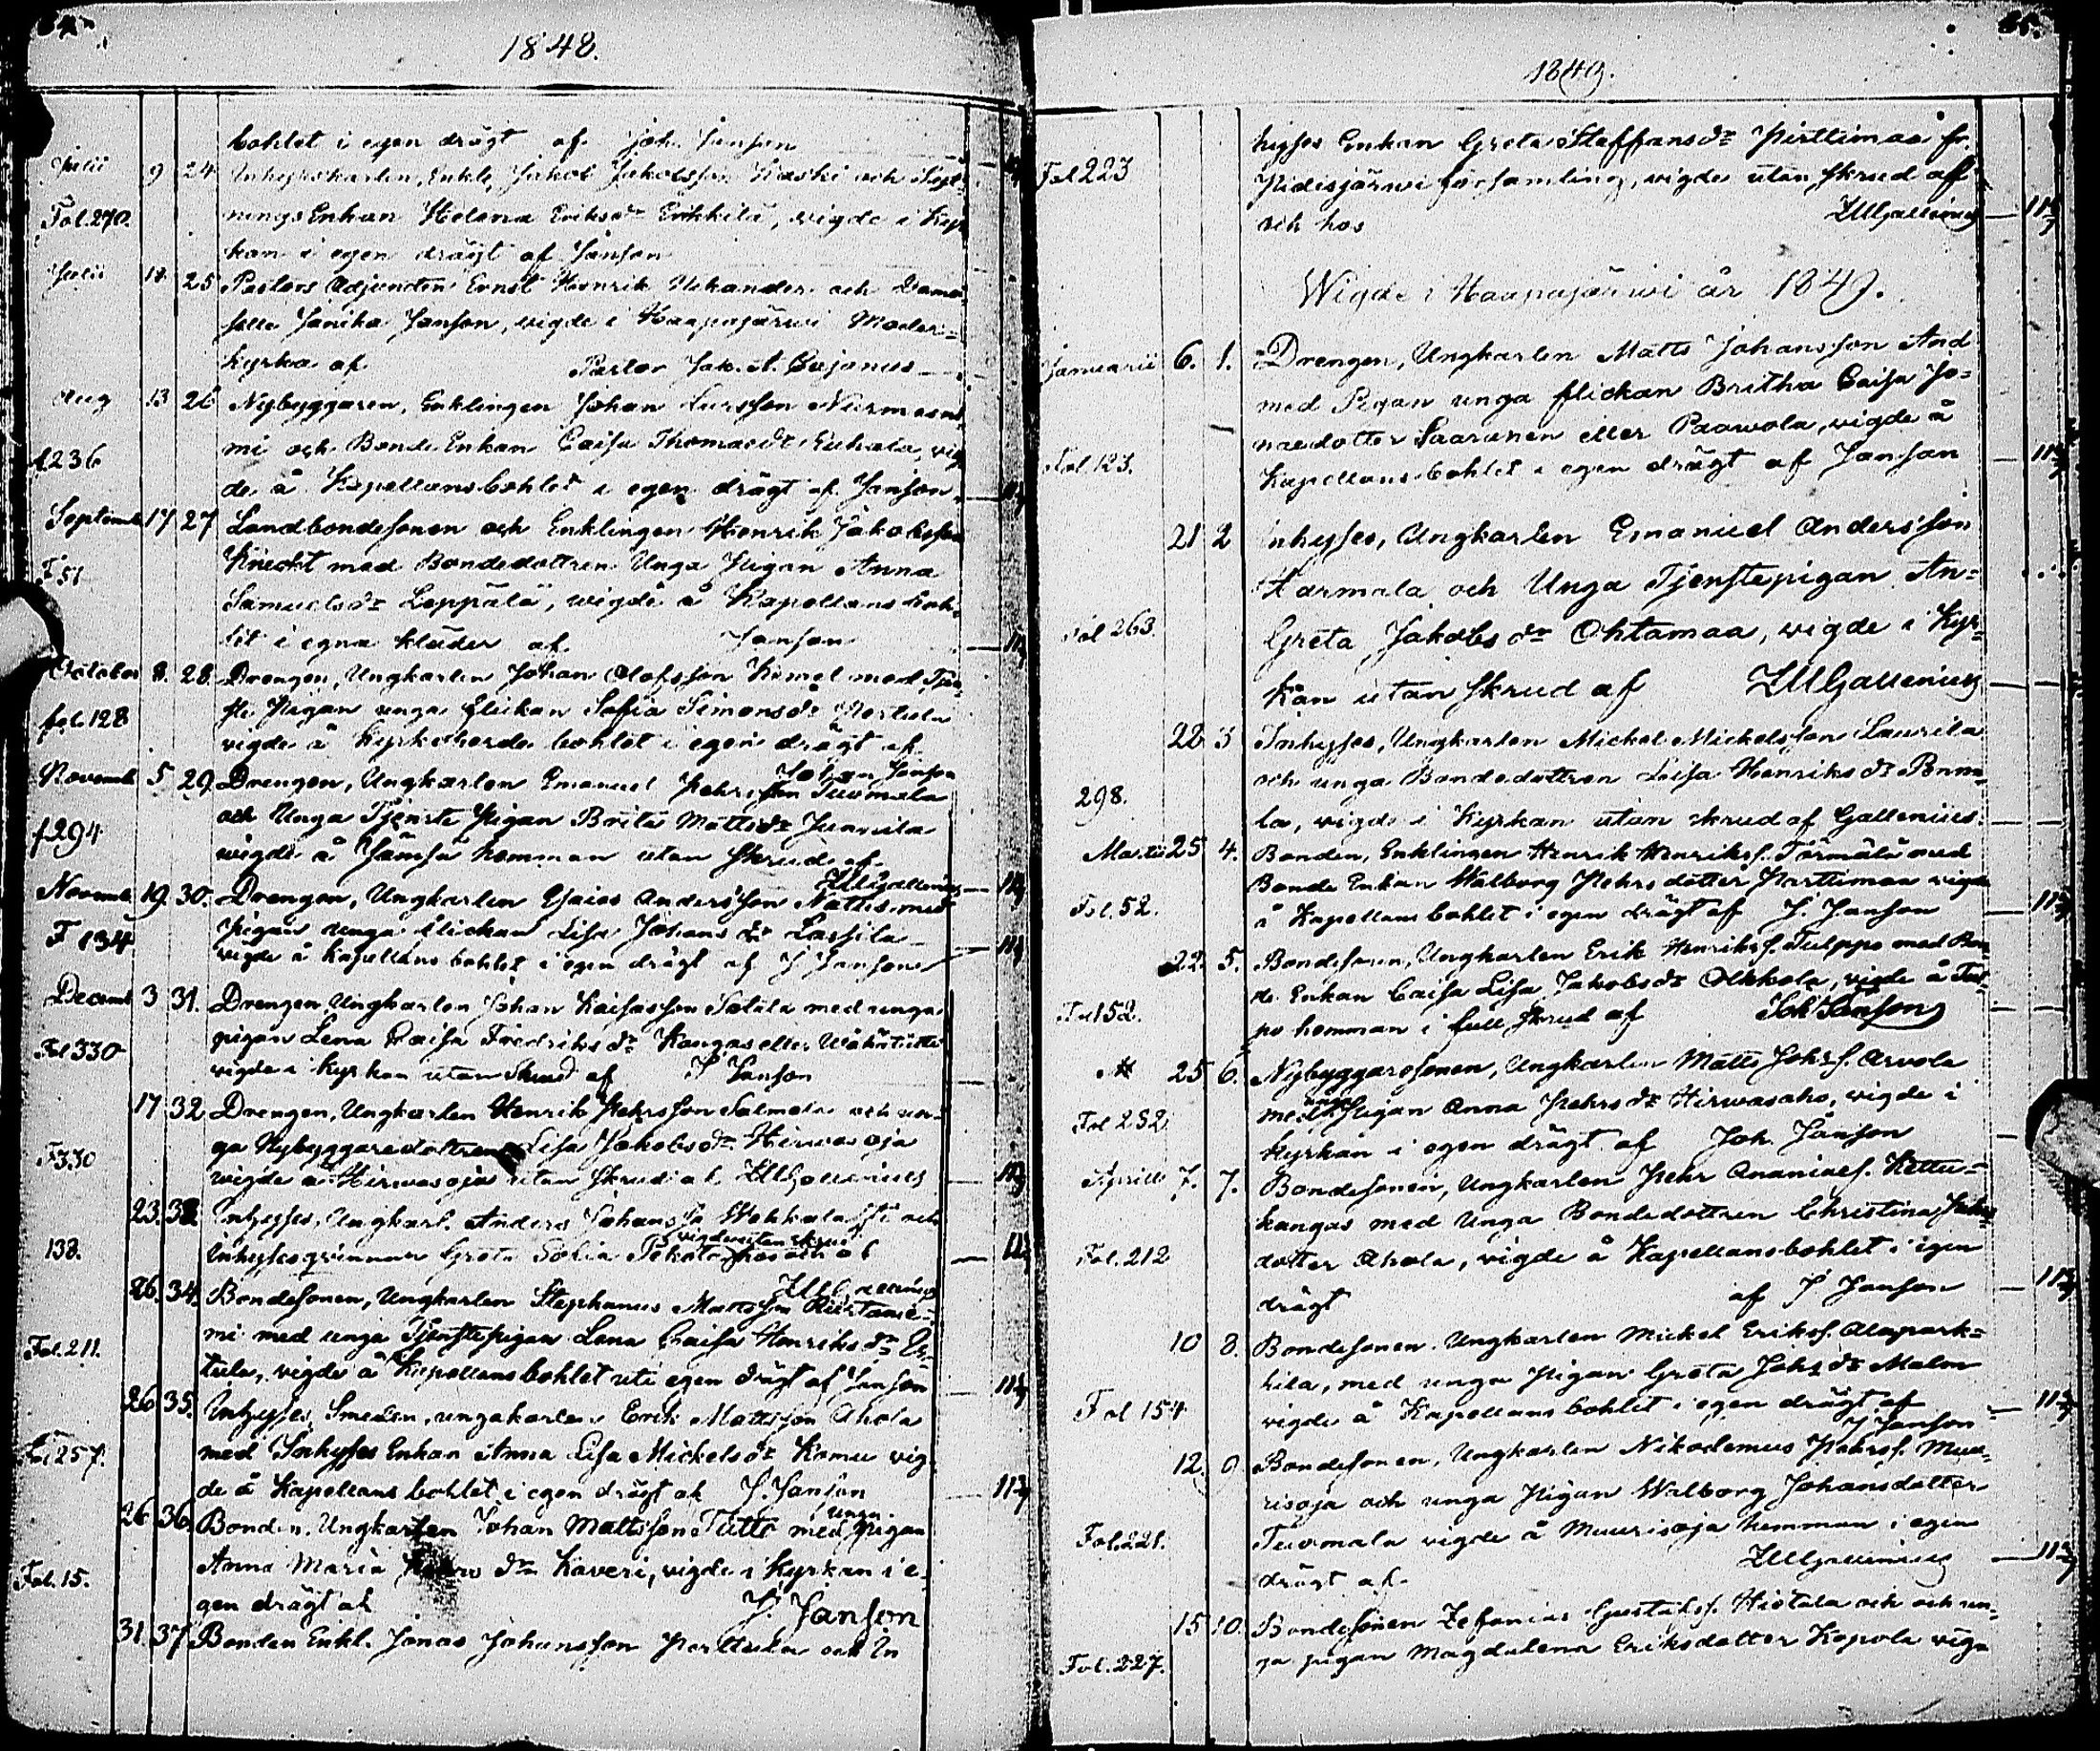 1848.
bohlet i egen drägt af Joh. Janson
Julii 9 24 Inhyseskarlen, Enkl. Jakob Jakobsson Kaski och Syt-
Fol. 270. nings Enkan Helena Eriksdr Erkkilä, vigde i Kyr-
kan i egen drägt af Janson
Julii 25 Pastors Adjuncten Ernst Henrik Helander och Dame-
selle Janika Janson, vigde i Haapajärwi Moder-
kyrka af Pastor Jak. A. Cajanus
Aug 13 26 Nybyggaren, Enklingen Johan Larsson Nurmesni-
f 236 mi och Bonde Enkan Caisa Thomasdr vig-
de å Kapellansbohlet i egen drägt af Janson
Septemb 17 27 Landbondesonen och Enklingen Henrik Jakobsson
F 51 Knecht med Bondedottren Unga Pigan Anna
Samuelsdr Leppälä, wigde å Kapellans boh-
let i egna kläder af Janson
October 8. 28. Drengen, Ungkarlen Johan Olofsson Kimel med Tjen-
fol. 128 ste Pigan unga flickan Sofia Simonsdr
vigde å Kyrkoherde bohlet i egen drägt af
Johan Janson
Novemb 5 29 Drengen, Ungkarlen Emanuel Pehrsson Tuomala
f 294 och Unga Tjenste Pigan Brita Mattsdr Junnila
wigde å Jämsä hemman utan skrud af
ZMGallenius
Novemb 19. 30. Drengen, Ungkarlen Esaias Andersson Nattis med
F 134 Pigan unga flickan Lisa Johansdr Lassila
vigde å Kapellans bohlet i egen drägt af J Janson
Decemb 3 31. Drengen Ungkarlen Johan Kaisasson Salala med unga
Fol 330 pigan Lena Caisa Fredriksdr Kangas eller
vigde i Kyrkan utan Skrud af J Janson
17 32 Drengen, Ungkarlen Henrik Pehrsson Salmela och un-
F 330 ga Nybyggaredottren Lisa Jakobsdr Hirwasoja
wigde å Hirwasoja utan skrud af ZMGallenius
23. 33 Inhyses, Ungkarl. Anders Johansson och
138. Inhysesqvinnan Greta Sofia vigde utan skrud hos och af
ZMGallenius
26. 34. Bondesonen, Ungkarlen Stephanus Mattsson
Fol. 211. mi med unga Tjenstepigan Lena Caisa Henriksdr
tula, vigde å Kapellansbohlet uti egen drägt af Janson
26 35. Inhyses Smeden, ungakarlen Erik Mattsson Ahola
Fol 257. med Inhyses Enkan Anna Lisa Mickelsdr Komu vig-
de å Kapellans bohlet i egen drägt af J. Janson
26 36 Bonden, Ungkarlen Johan Mattsson Tutto med unga Pigan
Fol. 15. Anna Maria dr Kaveri, vigde i Kyrkan i e-
gen drägt af J. Janson
31. 37 Bonden Enkl. Jonas Johansson Perttula och In
1849.
85.
hyses Enkan Greta Staffansdr Pirttimaa fr.
Fol 223 Pidisjärwi församling, vigde utan skrud af
och hos ZMGallenius
Wigde i Haapajärwi år 1849.
Januarii 6. 1. Drengen, Ungkarlen Matts Johansson And
med Pigan unga flickan Britha Caisa Jo-
Fol 123. naedotter Saaranen eller Paawola, vigde å
Kapellans bohlet i egen drägt af Janson
21 2 Inhyses, Ungkarlen Emanuel Andersson
Harmala och Unga Tjenstepigan An-
Fol 263. Greta Jakobsdr Ohtamaa, wigde i Kyr-
kan utan skrud af ZMGallenius
22 3 Inhyses, Ungkarlen Mickel Mickelsson Laurila
och unga Bondedottren Lisa Henriksdr
298. la, vigde i Kyrkan utan skrud af Gallenius.
Martii 25 4. Bonden, Enklingen Henrik Henrikss. Törmälä med
Fol. 52. Bonde Enkan Walborg Pehrsdotter Perttimaa vigde
å Kapellans bohlet i egen drägt af J. Janson
22. 5. Bondesonen, Ungkarlen Erik Henrikss. Tulppo med Bon-
Fol 152. de Enkan Caisa Lisa Jakobsdr Olkkola, vigde å Tul-
po hemman i full skrud af Joh Janson
25 6. Nybyggaresonen, Ungkarlen Matts Johss. Arvola
Fol 252 med unga Pigan Anna Pehrsdr Hirwasaho, vigde i
kyrkan i egen drägt af Joh. Janson
Aprill 7. 7. Bondesonen, Ungkarlen Pehr Ananiaes. Kettu-
kangas med Unga Bondedottren Christina
Fol. 212 dotter Ahola, vigde å Kapellansbohlet i egen
drägt af J Janson
10 8. Bondesonen Ungkarlen Mickel Erikss. Alapark-
kila, med unga Pigan Greta Johsdr Malm
Fol 154 vigde å Kapellans bohlet i egen drägt af
J Janson
12. 9 Bondesonen, Ungkarlen Nikodemus Pehrss. Muu-
risoja och unga Pigan Walborg Johansdotter
Fol. 221. Tuomala vigde å Muurisoja hemman i egen
drägt af ZMGallenius
15 10. Bondesonen Zefanias Gustafss. Hietala och och un-
Fol. 227. ga pigan Magdalena Eriksdotter Kopola vigde